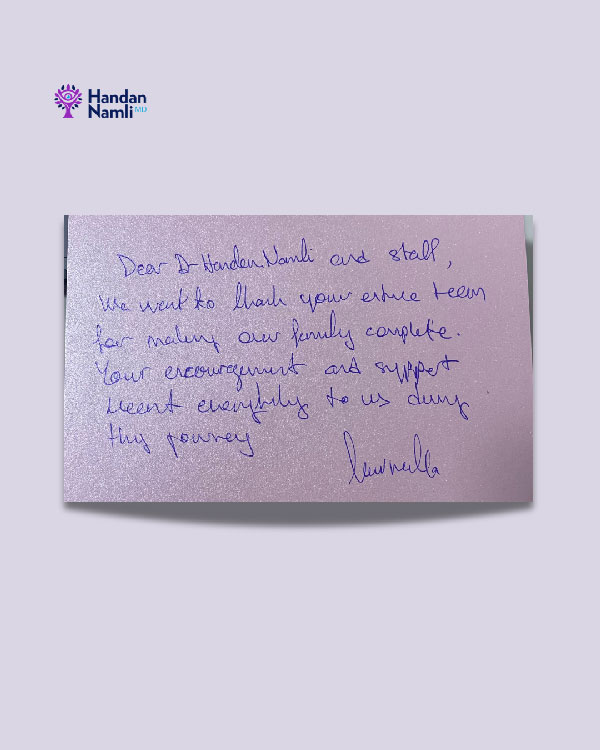 Handan
Namli MD
Dear Dr Handan Namli and staff,
We want to thank your entire team
for making our family complete.
Your encouragement and support
meant everything to us during
this journey